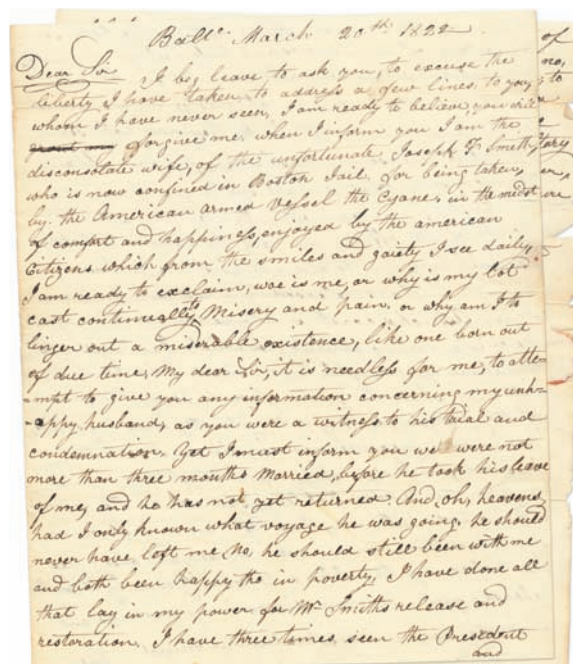 Balto. March 20th. 1822
Dear Sir I beg leave to ask you, to excuse the
liberty I have taken, to address a few lines, to you,
whom I have never seen, I am ready to believe you will
forgive me, when I inform you I am the
disconsolate wife, of the unfortunate, Joseph F. Smith,
who is now confined in Boston Jail, for being taken,
by the American armed Vessel the Cyane, in the midst
of comfort and happiness, enjoyed by the american
Citizens which from the smiles and gaiety I see daily,
I am ready to exclaim, woe is me, or why is my lot
cast continually to Misery and pain. or why am I to
linger out a miserable existence, like one born out
of due time, My dear Sir, it is needless for me, to atte-
-mpt to give you any information concerning my unh-
-appy husband, as you were a witness to his trial and
condemnation. Yet I must inform you we were not
more than three months Married, before he took his leave
of me, and he has not yet returned And, oh, heavens,
had I only known what voyage he was going, he should
never have left me No, he should still been with me
and both been happy tho in poverty, I have done all
that lay in my power for Mr. Smiths release and
restoration, I have three times, seen the President
and
of
no,
to
tory